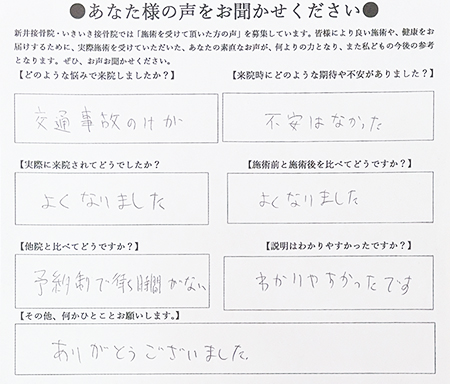 ●あなた様の声をお聞かせください●
新井接骨院・いきいき接骨院では「施術を受けて頂いた方の声」を募集しています。皆様により良い施術や、健康をお
届けするために、実際施術を受けていただいた、あなたの素直なお声が、何よりの力となり、また私どもの今後の参考
となります。ぜひ、お声お聞かせください。
【どのような悩みで来院しましたか？】
交通事故のけが
【来院時にどのような期待や不安がありました？】
不安はなかった
【実際に来院されてどうでしたか？
よくなりました
【施術前と施術後を比べてどうですか？】
よくなりました
【他院と比べてどうですか？】
予約制で待ち時間がない
【説明はわかりやすかったですか？】
わかりやすかったです
【その他、何かひとことお願いします。】
ありがとうございました。